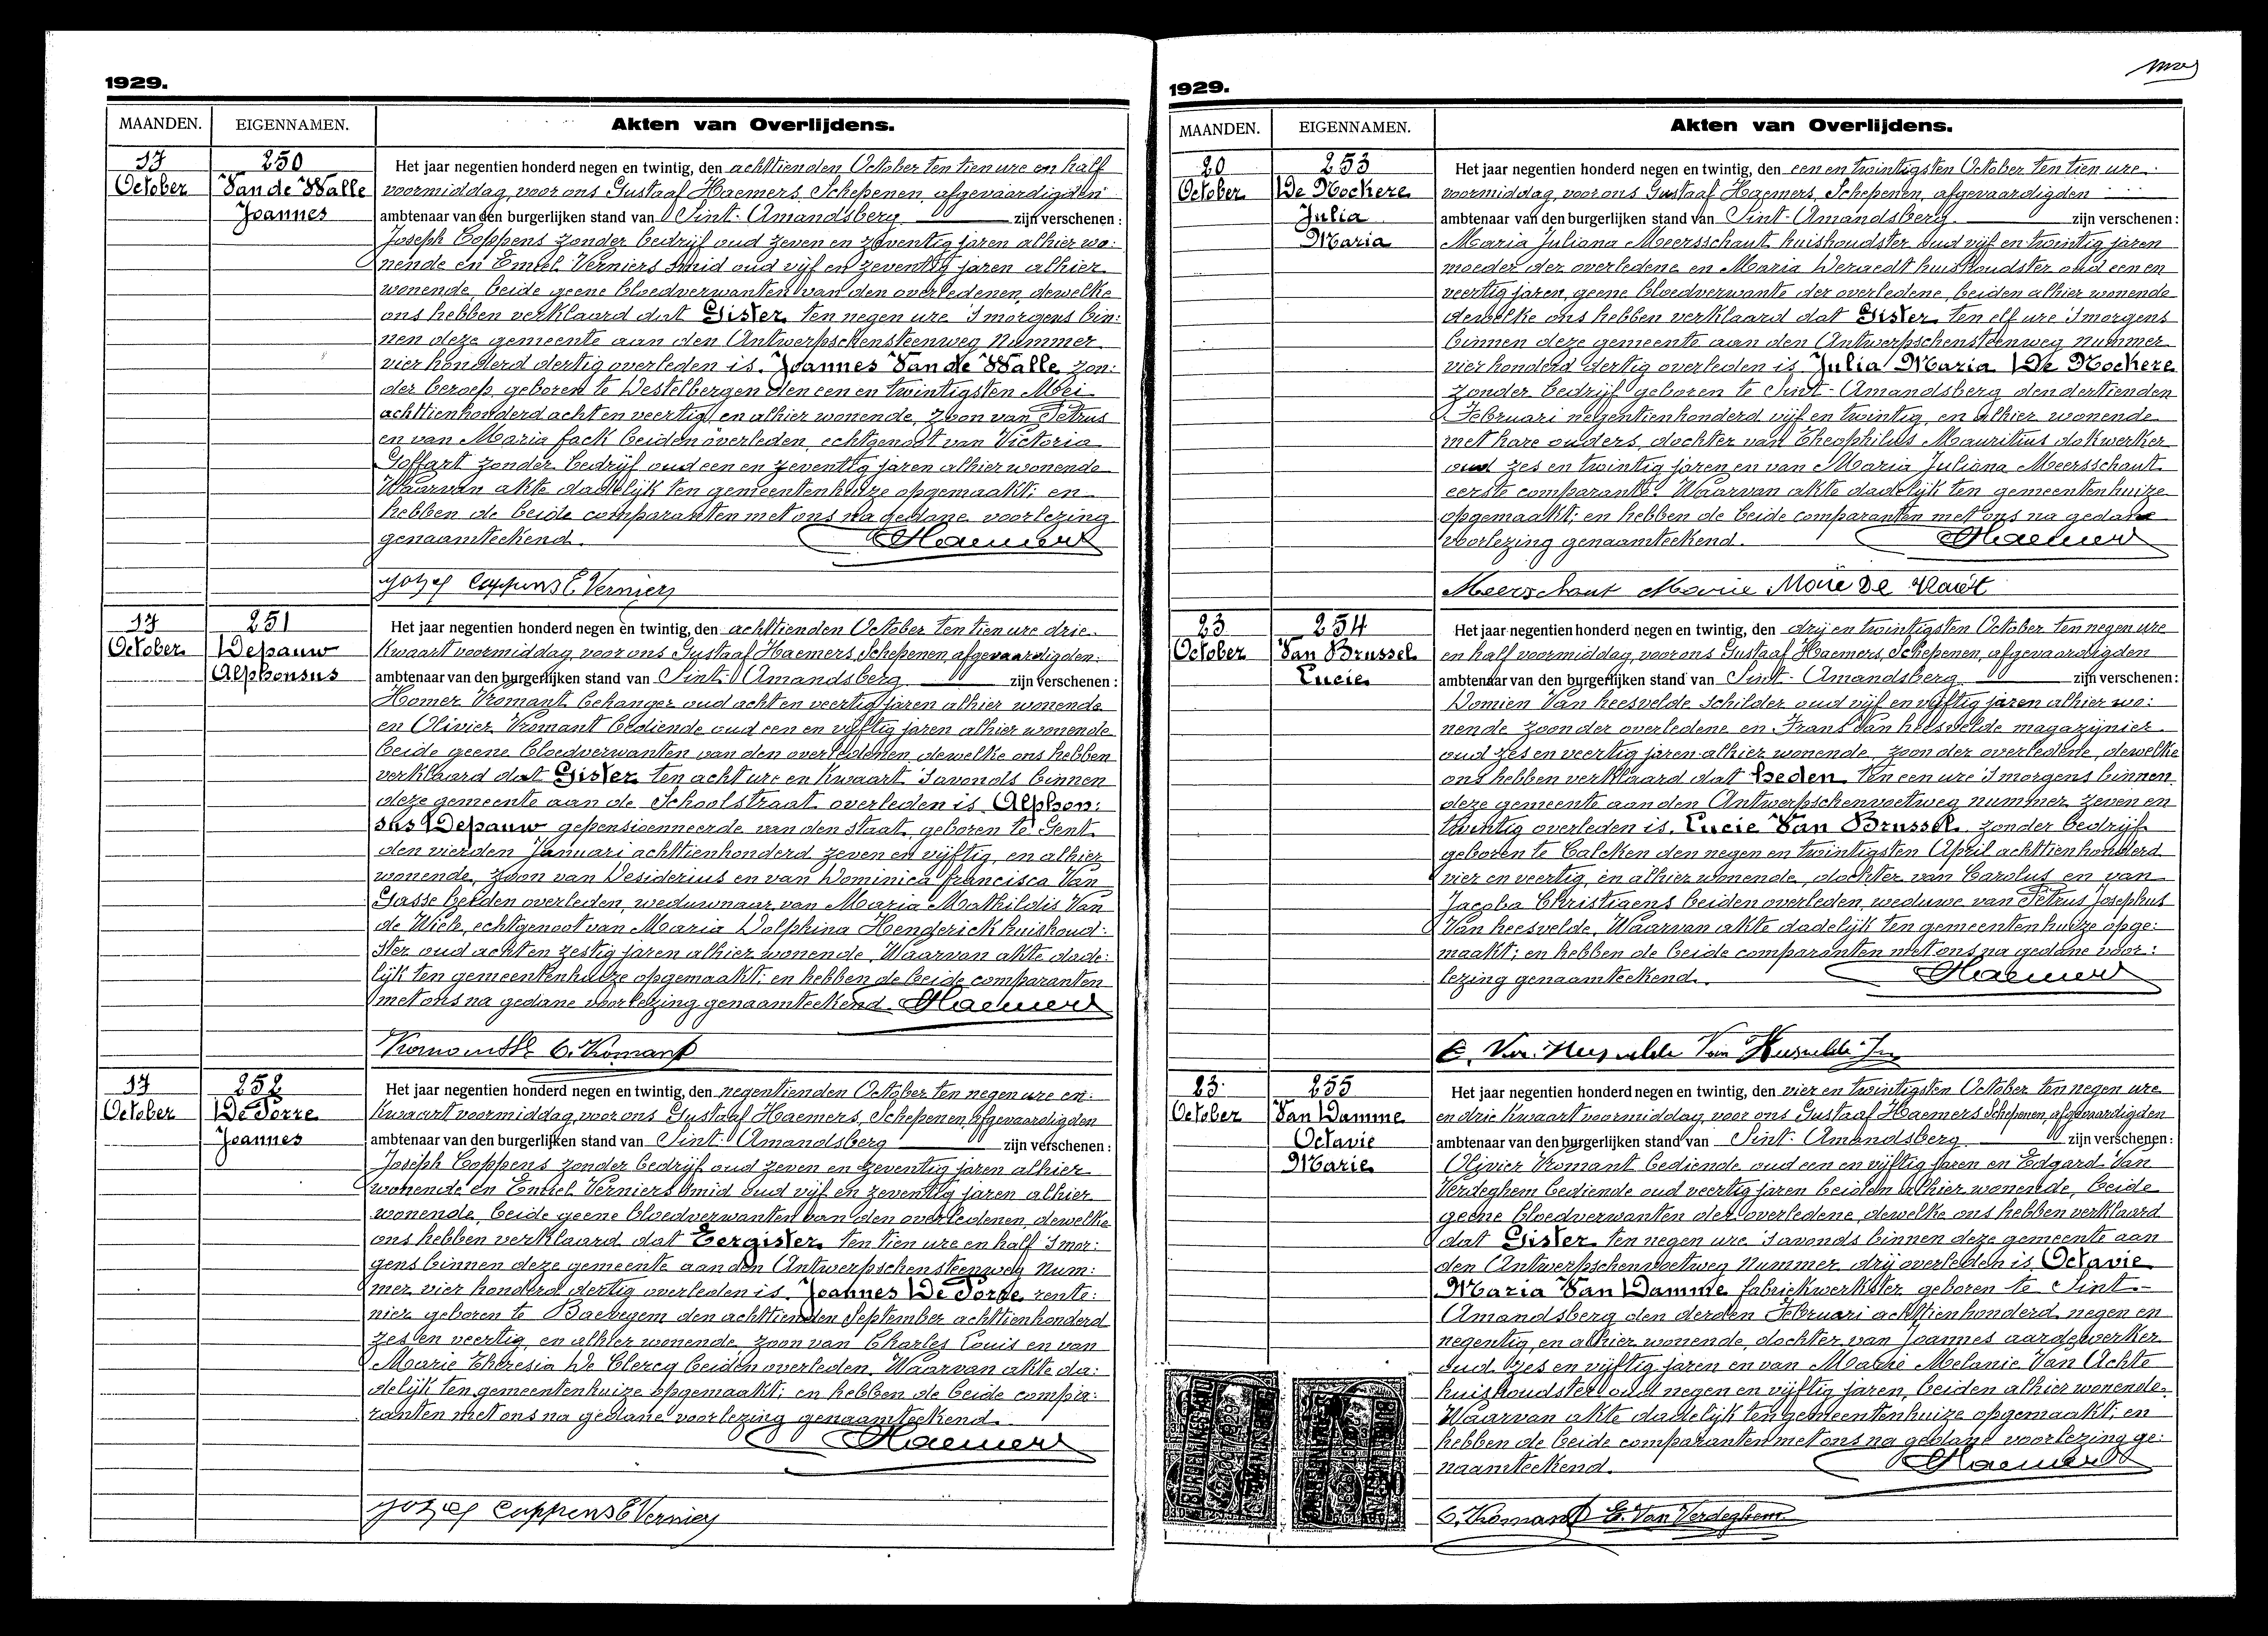 1929.
MAANDEN. EIGENNAMEN. Akten van Overlijdens.
17 250 Het jaar negentien honderd negen en twintig, den achttienden October ten tien ure en half
October Van de Walle voormiddag, voor ons Gustaaf Haemers, Schepenen, afgevaardigden
Joannes ambtenaar van den burgerlijken stand van Sint-Amandsberg zijn verschenen:
Joseph Coppens zonder bedrijf oud zeven en zeventig jaren alhier wo:
nende en Emiel Verniers smid oud vijf en zeventig jaren alhier
wonende, beide geene bloedverwanten van den overledenen, dewelke
ons hebben verklaard dat Gister ten negen ure 's morgens bin:
nen deze gemeente aan den Antwerpschensteenweg nummer
vier honderd dertig overleden is Joannes Van de Walle zon:
der beroep, geboren te Destelbergen den een en twintigsten Mei
achttienhonderd acht en veertig, en alhier wonende, zoon van Petrus
en van Maria Fack beiden overleden, echtgenoot van Victoria
Goffart zonder bedrijf oud een en zeventig jaren alhier wonende
Waarvan akte dadelijk ten gemeentenhuize opgemaakt; en
hebben de beide comparanten met ons na gedane voorlezing
genaamteekend. Haemers
Jozef Coppens E. Verniers
17 251 Het jaar negentien honderd negen en twintig, den achttienden October ten tien ure drie
October Depauw kwaart voormiddag, voor ons Gustaaf Haemers, Schepenen, afgevaardigden
Alphonsus ambtenaar van den burgerlijken stand van Sint-Amandsberg zijn verschenen:
Homer Vromant behanger oud acht en veertig jaren alhier wonende
en Olivier Vromant bediende oud een en vijftig jaren alhier wonende
beide geene bloedverwanten van den overledenen, dewelke ons hebben
verklaard dat Gister ten acht ure en kwaart 's avonds binnen
deze gemeente aan de Schoolstraat overleden is Alphon:
sus Depauw gepensioenneerde van den staat, geboren te Gent
den vierden Januari achttienhonderd zeven en vijftig, en alhier
wonende, zoon van Desiderius en van Dominica Francisca Van
Gasse beiden overleden, weduwnaar van Maria Mathildis Van
de Wiele, echtgenoot van Maria Dolphina Henderick huishoud:
ster oud acht en zestig jaren alhier wonende. Waarvan akte dade:
lijk ten gemeentenhuize opgemaakt; en hebben de beide comparanten
met ons na gedane voorlezing genaamteekend. Haemers
O. Vromant
17 252 Het jaar negentien honderd negen en twintig, den negentienden October ten negen ure en
October De Porre kwaart voormiddag, voor ons Gustaaf Haemers, Schepenen, afgevaardigden
Joannes ambtenaar van den burgerlijken stand van Sint-Amandsberg zijn verschenen:
Joseph Coppens zonder bedrijf oud zeven en zeventig jaren alhier
wonende en Emiel Verniers smid oud vijf en zeventig jaren alhier
wonende, beide geene bloedverwanten van den overledenen, dewelke
ons hebben verklaard dat Eergister ten tien ure en half 's mor:
gens binnen deze gemeente aan den Antwerpschensteenweg num:
mer vier honderd dertig overleden is Joannes De Porre rente:
nier geboren te Baevegem den achttienden September achttienhonderd
zes en veertig, en alhier wonende, zoon van Charles Louis en van
Marie Theresia De Clercq beiden overleden. Waarvan akte da:
delijk ten gemeentenhuize opgemaakt; en hebben de beide compa:
ranten met ons na gedane voorlezing genaamteekend.
Haemers
Jozef Coppens E. Verniers
1929.
MAANDEN. EIGENNAMEN. Akten van Overlijdens.
20 253 Het jaar negentien honderd negen en twintig, den een en twintigsten October ten tien ure
October De Nockere voormiddag, voor ons Gustaaf Haemers, Schepenen, afgevaardigden
Julia ambtenaar van den burgerlijken stand van Sint-Amandsberg zijn verschenen:
Maria Maria Juliana Meersschaut huishoudster oud vijf en twintig jaren
moeder der overledene en Maria Deraedt huishoudster oud een en
veertig jaren, geene bloedverwante der overledene, beiden alhier wonende
dewelke ons hebben verklaard dat Gister ten elf ure 's morgens
binnen deze gemeente aan den Antwerpschensteenweg nummer
vier honderd dertig overleden is Julia Maria De Nockere
zonder bedrijf geboren te Sint-Amandsberg den dertienden
Februari negentienhonderd vijf en twintig, en alhier wonende
met hare ouders, dochter van Theophilus Mauritius dokwerker
oud zes en twintig jaren en van Maria Juliana Meersschaut
eerste comparante. Waarvan akte dadelijk ten gemeentenhuize
opgemaakt; en hebben de beide comparanten met ons na gedane
voorlezing genaamteekend. Haemers
Meerschaut Marie
23 254 Het jaar negentien honderd negen en twintig, den drij en twintigsten October ten negen ure
October Van Brussel en half voormiddag, voor ons Gustaaf Haemers, Schepenen, afgevaardigden
Lucie ambtenaar van den burgerlijken stand van Sint-Amandsberg zijn verschenen:
Domien Van heesvelde schilder oud vijf en vijftig jaren alhier wo:
nende zoon der overledene en Frans Van heesvelde magazijnier
oud zes en veertig jaren alhier wonende, zoon der overledene, dewelke
ons hebben verklaard dat heden ten een ure 's morgens binnen
deze gemeente aan den Antwerpschenvoetweg nummer zeven en
twintig overleden is Lucie Van Brussel zonder bedrijf
geboren te Calcken den negen en twintigsten April achttienhonderd
vier en veertig, en alhier wonende, dochter van Carolus en van
Jacoba Christiaens beiden overleden, weduwe van Petrus Josephus
Van heesvelde. Waarvan akte dadelijk ten gemeentenhuize opge:
maakt; en hebben de beide comparanten met ons na gedane voor:
lezing genaamteekend. Haemers
23 255 Het jaar negentien honderd negen en twintig, den vier en twintigsten October ten negen ure
October Van Damme en drie kwaart voormiddag, voor ons Gustaaf Haemers Schepenen, afgevaardigden
Octavie ambtenaar van den burgerlijken stand van Sint-Amandsberg zijn verschenen:
Marie Olivier Vromant bediende oud een en vijftig jaren en Edgard Van
Verdeghem bediende oud veertig jaren beiden alhier wonende, beide
geene bloedverwanten der overledene, dewelke ons hebben verklaard
dat Gister ten negen ure 's avonds binnen deze gemeente aan
den Antwerpschenvoetweg nummer drij overleden is Octavie
Maria Van Damme fabriekwerkster geboren te Sint-
Amandsberg den derden Februari achttienhonderd negen en
negentig, en alhier wonende, dochter van Joannes aardewerker
oud zes en vijftig jaren en van Marie Melanie Van Achte
huishoudster oud negen en vijftig jaren, beiden alhier wonende.
Waarvan akte dadelijk ten gemeentenhuize opgemaakt; en
hebben de beide comparanten met ons na gedane voorlezing ge:
naamteekend. Haemers
O. Vromant E. Van Verdeghem